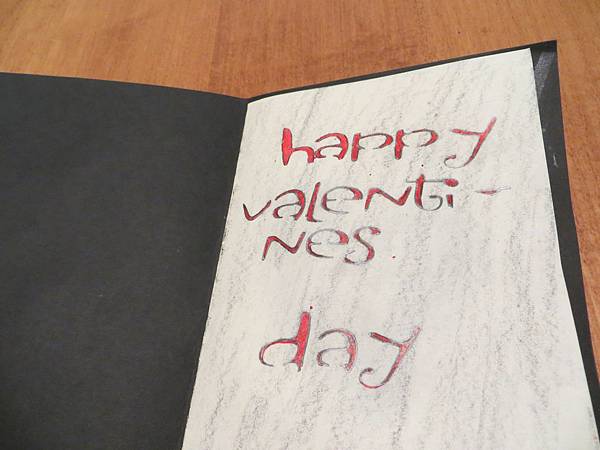 happy
valenti-
nes
day